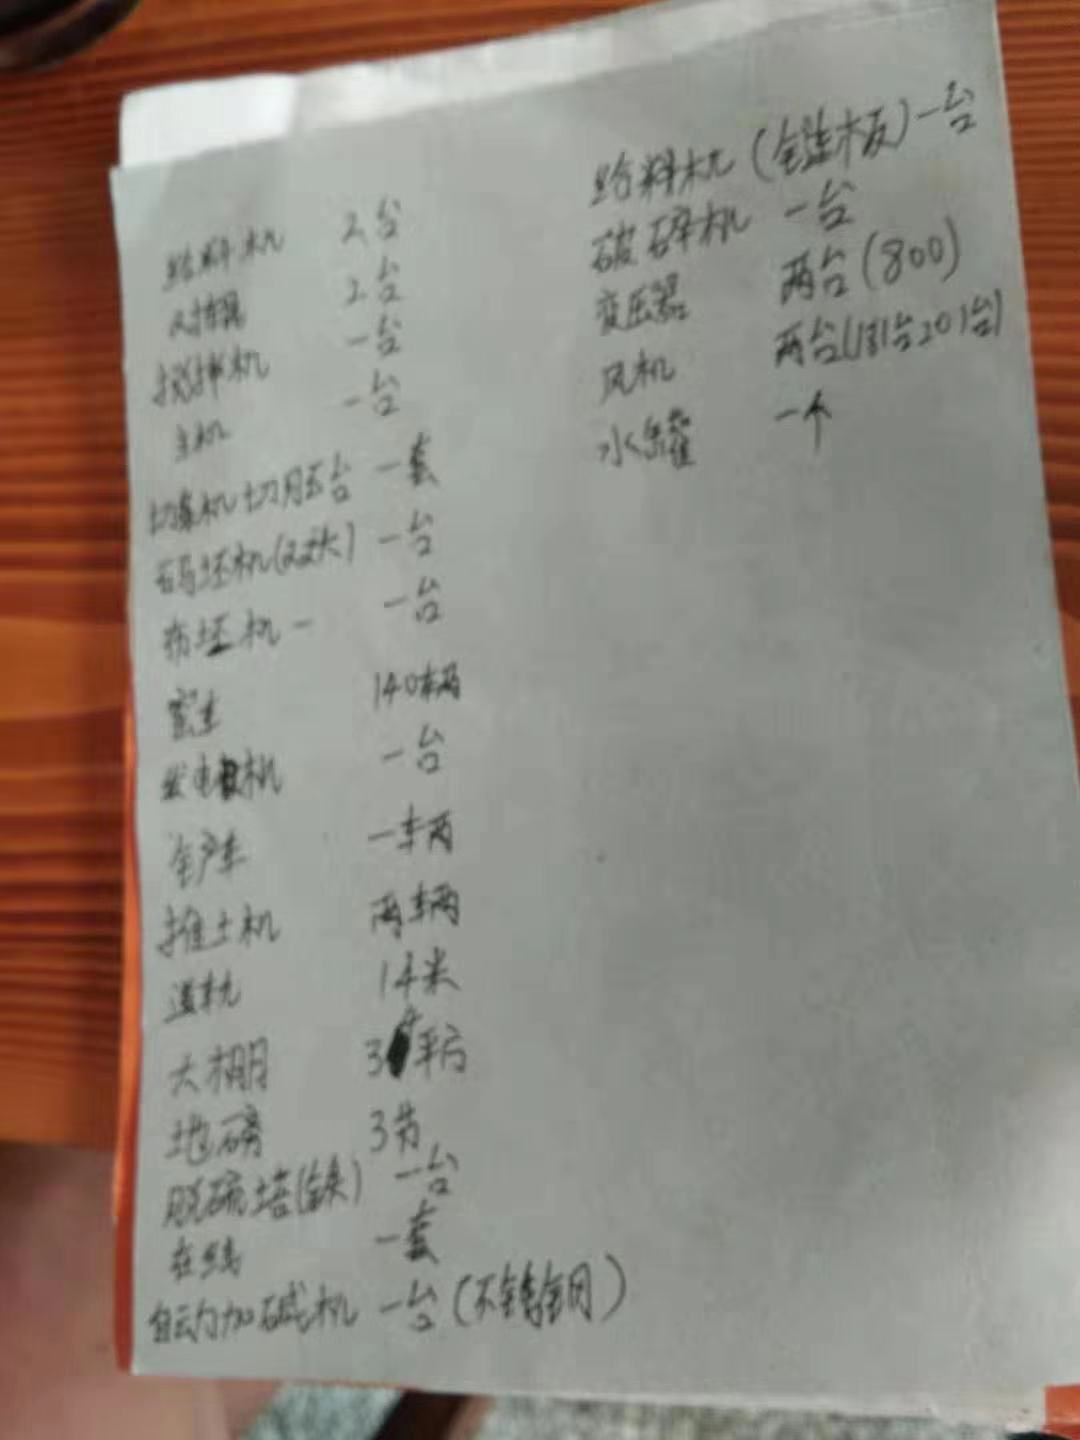 给料机 2台
对棍 2台
搅拌机 一台
主机 一台
切条机切胚台 一套
码坯机(222长) 一台
布坯机一 一台
窑车 140辆
发电机 一台
铲车 一辆
推土机 两辆
道轨 14米
大棚 3千平方
地磅 3节
脱硫塔(铁) 一台
在线 一套
自动加碱机 一台(不锈钢)
给料机(链板)一台
破碎机 一台
变压器 两台(800)
风机 两台(181台201台)
水罐 一个